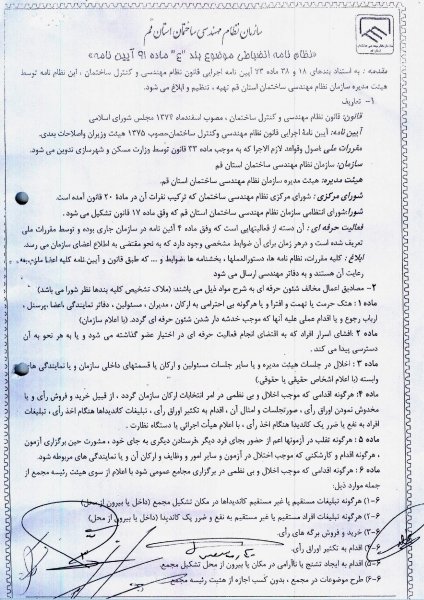 سازمان نظام مهندسی ساختمان استان قم
«نظام نامه انضباطی موضوع بند "ع" ماده ۹۱ آیین نامه»
مقدمه : به استناد بندهای ۱۸ و ۳۸ ماده ۷۳ آیین نامه اجرایی قانون نظام مهندسی و کنترل ساختمان ، این نظام نامه توسط
هیئت مدیره سازمان نظام مهندسی ساختمان استان قم تهیه ، تنظیم و ابلاغ می شود.
۱- تعاریف
قانون: قانون نظام مهندسی و کنترل ساختمان ، مصوب اسفندماه ۱۳۷۴ مجلس شورای اسلامی
آیین نامه: آیین نامۀ اجرایی قانون نظام مهندسی وکنترل ساختمان-مصوب ۱۳۷۵ هیئت وزیران واصلاحات بعدی.
مقررات ملی :اصول وقواعد لازم الاجرا که به موجب ماده ۳۳ قانون توسط وزارت مسکن و شهرسازی تدوین می شود.
سازمان: سازمان نظام مهندسی ساختمان استان قم
هیئت مدیره: هیئت مدیره سازمان نظام مهندسی ساختمان استان قم.
شورای مرکزی : شورای مرکزی نظام مهندسی ساختمان که ترکیب نفرات آن در مادۀ ۲۰ قانون آمده است.
شورا:شورای انتظامی سازمان نظام مهندسی ساختمان استان قم که وفق ماده ۱۷ قانون تشکیل می شود.
فعالیت حرفه ای : آن دسته از فعالیتهایی است که وفق ماده ۴ آئین نامه در سازمان جاری بوده و توسط مقررات ملی
تعریف شده است و درهر زمان برای آن ضوابط مشخصی وجود دارد که به نحو مقتضی به اطلاع اعضای سازمان می رسد.
ابلاغ : کلیه مقررات، نظام نامه ها، دستورالعملها ، بخشنامه ها ضوابط و ... که طبق قانون و آیین نامه کلیه اعضا ملزم به
رعایت آن هستند و به دفاتر مهندسی ارسال می شود
۲- مصادیق اعمال مخالف شئون حرفه ای به شرح مواد ذیل می باشند: (ملاک تشخیص کلیه بندها نظر شورا می باشد)
ماده ۱ : هتک حرمت یا تهمت و افترا و یا هرگونه بی احترامی به ارکان ، مدیران ، مسئولین ، دفاتر نمایندگی ،اعضا،پرسنل ،
ارباب رجوع و یا اقدام عملی علیه آنها که موجب خدشه دار شدن شئون حرفه ای گردد. (با اعلام سازمان)
ماده ۲:افشای اسرار افراد که به اقتضای انجام فعالیت حرفه ای در اختیار عضو گذاشته می شود و یا به هر نحو به آن
دسترسی پیدا می کند.
ماده ۳ : اخلال در جلسات هیئت مدیره و یا سایر جلسات مسئولین و ارکان یا قسمتهای داخلی سازمان و یا نمایندگی های
وابسته (با اعلام اشخاص حقیقی یا حقوقی.)
ماده ۴: هرگونه اقدام که موجب اخلال و بی نظمی در امر انتخابات ارکان سازمان گردد ، از قبیل خرید و فروش رأی و یا
مخدوش نمودن اوراق رأی ، صورتجلسات و امثال آن ، اقدام به تکثیر اوراق رأی ، تبلیغات کاندیداها هنگام اخذ رأی ، تبلیغات
افراد به نفع یا ضرر یک کاندیدا هنگام اخذ رأی ، با اعلام هیأت اجرائی یا دستگاه نظارت .
ماده ۵ : هرگونه تقلب در آزمونها اعم از حضور بجای فرد دیگر ،فرستادن دیگری به جای خود ، مشورت حین برگزاری آزمون
، هرگونه اقدام و کارشکنی که موجب اختلال در آزمون و سایر امور و وظایف و ارکان آن و یا نمایندگی های مربوطه شود.
ماده ۶ : هرگونه اقدامی که موجب اخلال و بی نظمی در برگزاری مجامع عمومی شود با اعلام از سوی هیئت رئیسه مجمع از
جمله موارد ذیل:
۶-۱) هرگونه تبلیغات مستقیم یا غیر مستقیم کاندیداها در مکان تشکیل مجمع (داخل یا بیرون از محل)
۶-۲) هرگونه تبلیغات افراد مستقیم یا غیر مستقیم به نفع و ضرر یک کاندیدا (داخل یا بیرون از محل)
۶-۳) خرید و فروش برگه های رأی.
۶-۴) اقدام به تکثیر اوراق رأی.
۶-۵) اقدام به ایجاد تشنج یا ناآرامی در مکان یا بیرون از محل تشکیل مجمع.
۶-۶) طرح موضوعات در مجمع ، بدون کسب اجازه از هیئت رئیسه مجمع.